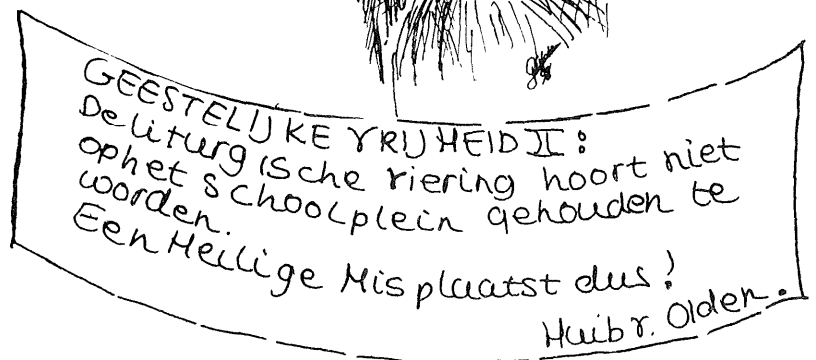 GEESTELIJKE VRIJHEID II:
De liturgische viering hoort niet
op het schoolplein gehouden te
worden.
Een Heilige Misplaatst dus!
Huib v. Olden.